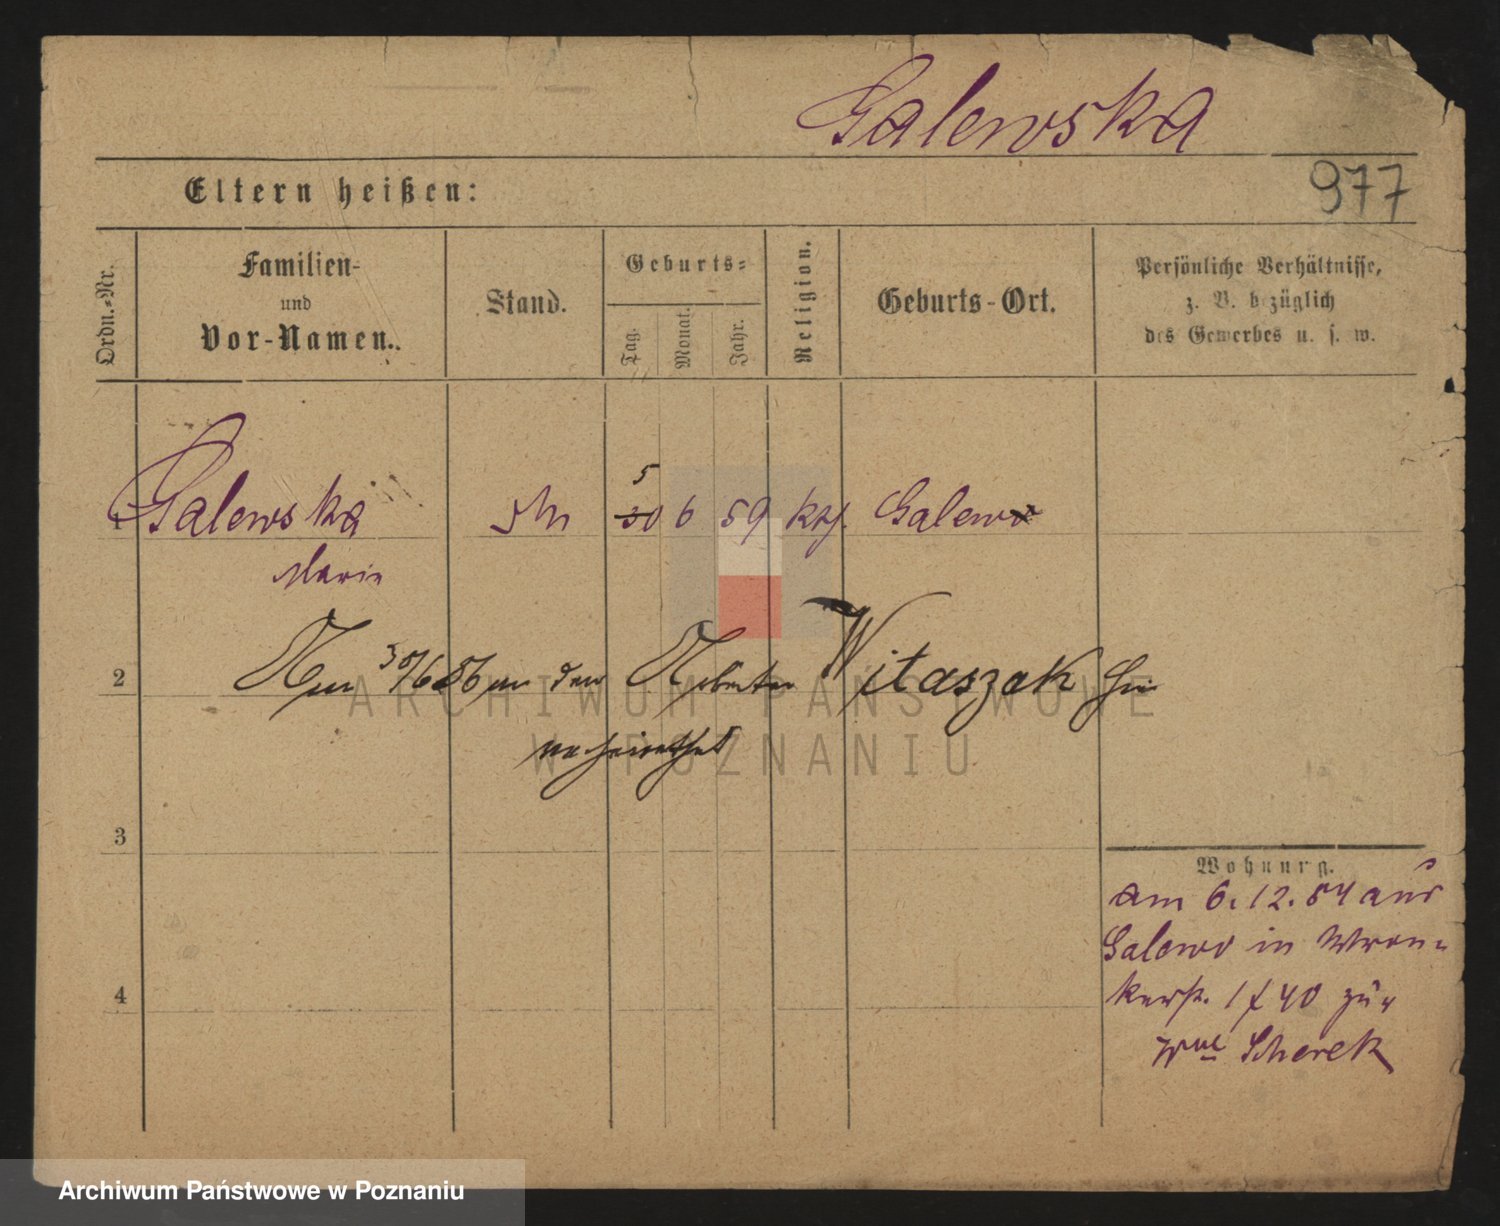 Galewska
Eltern heißen:
977
Ordn.-Nr.
Familien-
und
Vor-Namen.
Stand.
Geburts-
Tag.
Monat.
Jahr.
Religion.
Geburts-Ort.
Persönliche Verhältnisse,
z. B. bezüglich
des Gewerbes u. s. w.
5
1 Galewska 30 6 59 kth. Galewo
Marie
2 Am 30/6 86 an den Arbeiter Witaszak hier
verheirathet
3
Wohnung.
am 6. 12. 84 aus
Galewo in Wron-
kerst. 40 zur
4
Wwe Scherek
ARCHIWUM PAŃSTWOWE
W POZNANIU
Archiwum Państwowe w Poznaniu